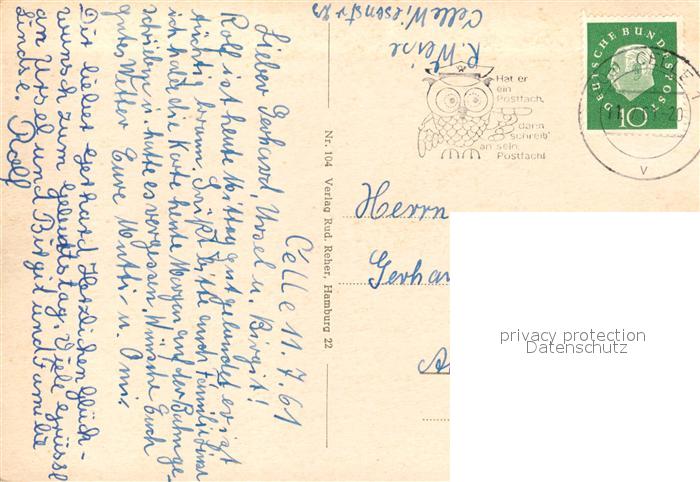 Celle 11.7.61
Lieber Gerhard, Ursel u. Birgit!
Rolf ist heute Mittag gut gelandet er ist
tüchtig braun. Grüßt bitte auch Familie
ich habe die Karte heute Morgen auf der Bahn ge-
schrieben u. hatte es vergessen. Wünsche Euch
gutes Wetter Eure Mutti u. Omi.
Dir lieber Gerhard Herzlichen Glück-
wunsch zum geburtstag. Viele grüsse
an Ursel und Birgit und Familie
Lindse. Rolf
R. Weise
Celle Wiesenstr
Nr. 104 Verlag Rud. Reher, Hamburg 22
Hat er
ein
Postfach,
dann
schreib'
an sein
Postfach!
DEUTSCHE BUNDESPOST
10
CELLE
11
-20
V
Herrn
Gerha
privacy protection
Datenschutz